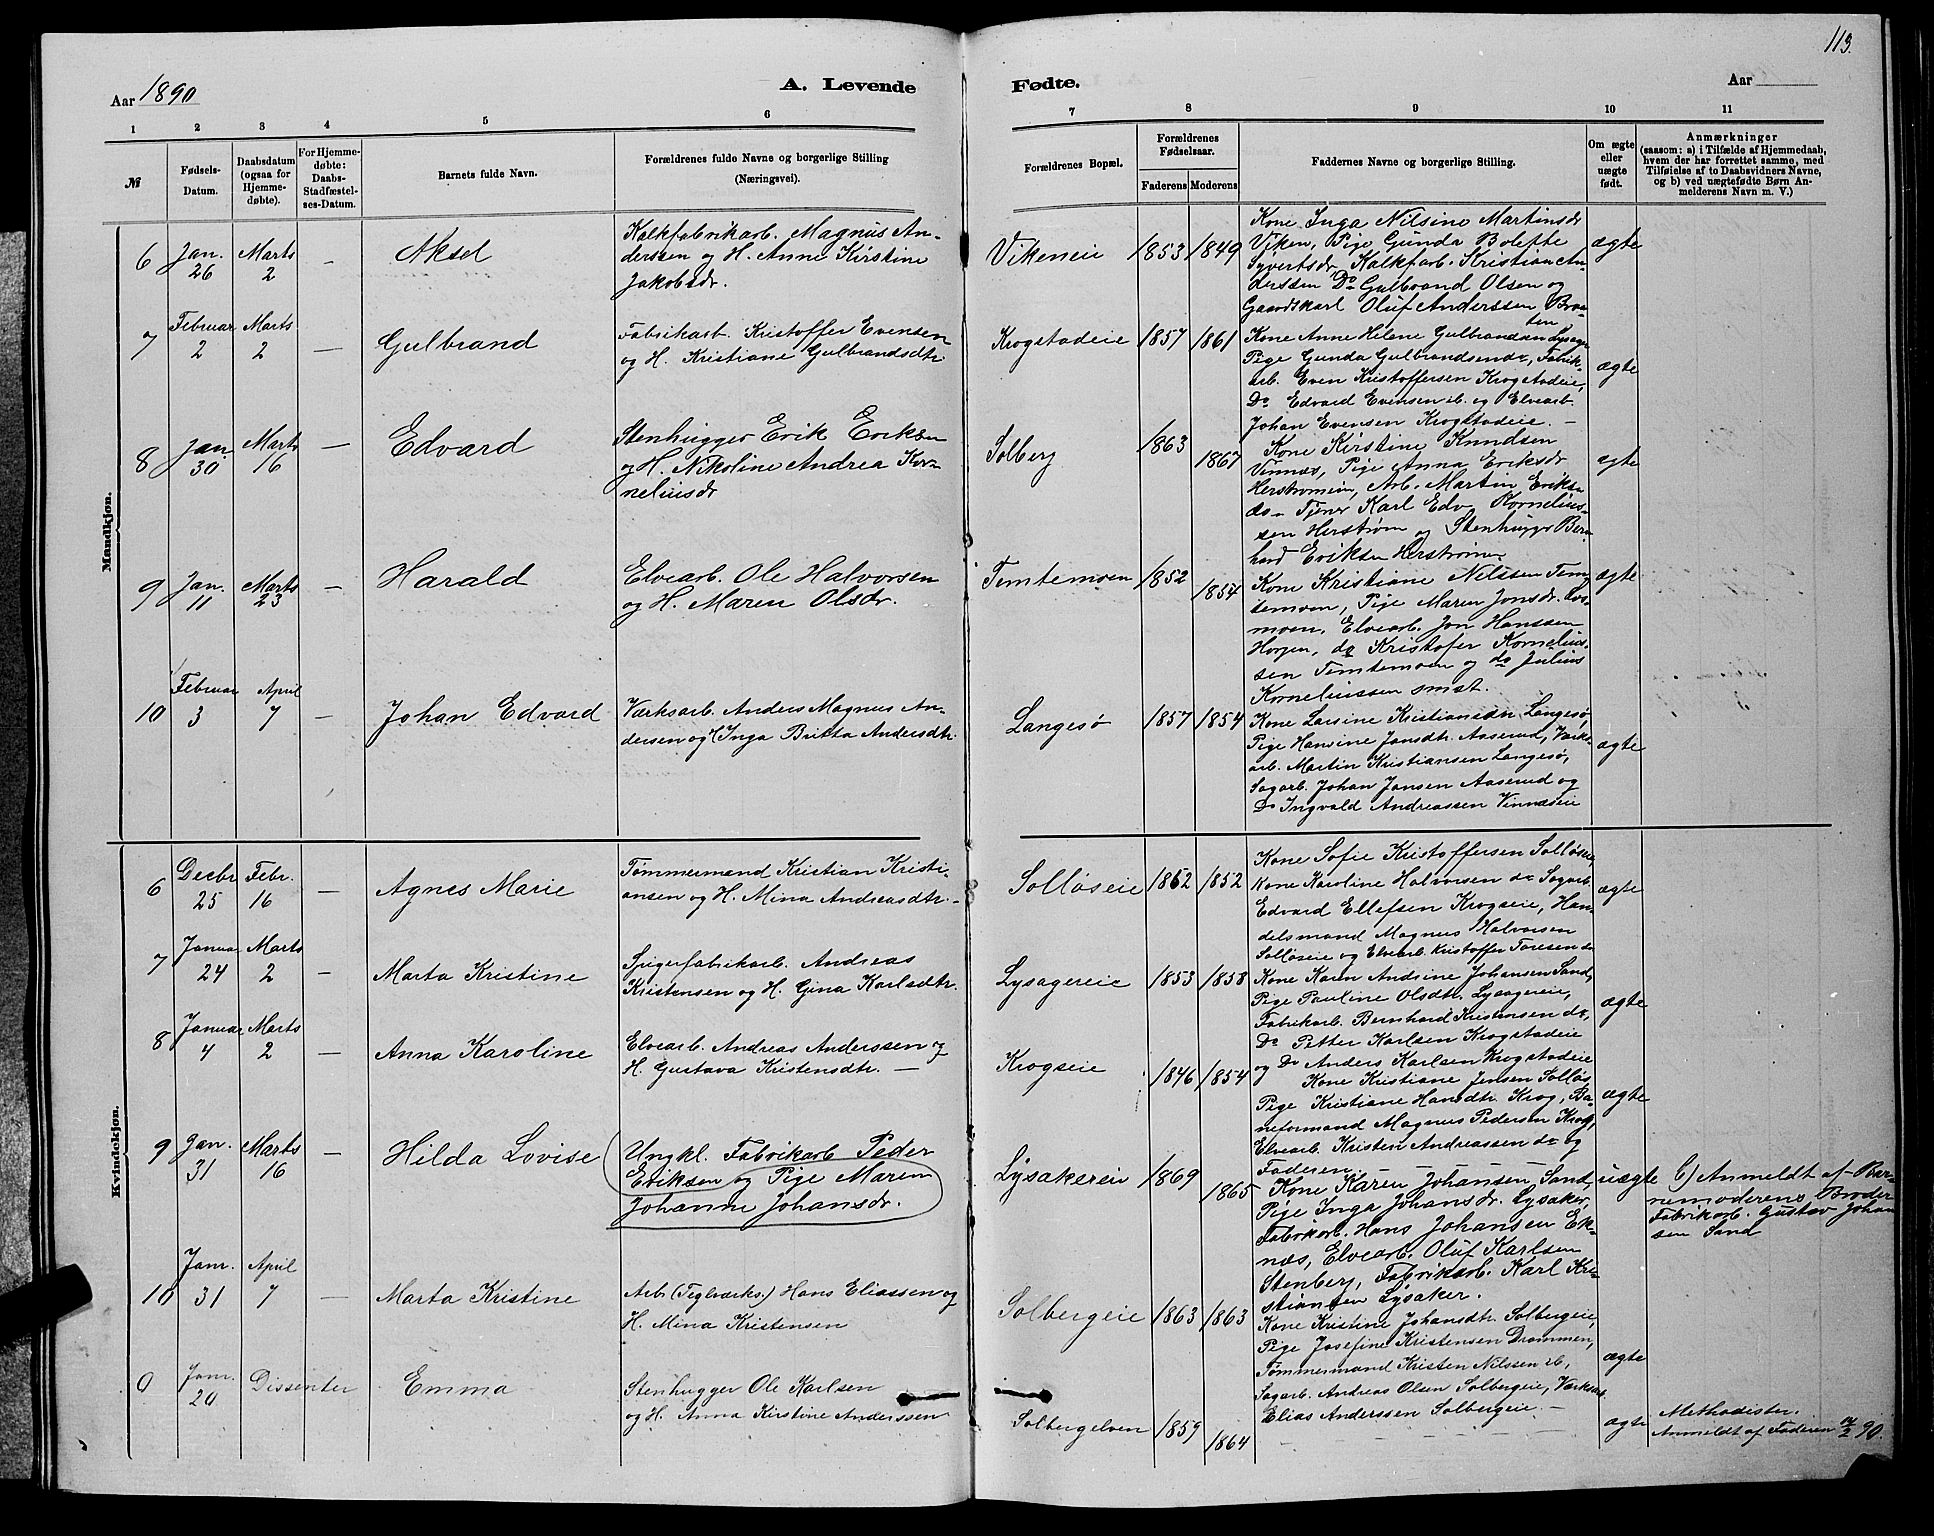 113.
Aar 1890
A. Levende
Fødte.
Aar
1 2 3 4 5 6 7 8 9 10 11
№
Fødsels-Datum.
Daabsdatum (ogsaa for Hjemmedøbte).
For Hjemmedøbte: Daabs-Stadfæstelses-Datum.
Barnets fulde Navn.
Forældrenes fulde Navne og borgerlige Stilling
(Næringsvei).
Forældrenes Bopæl.
Forældrenes Fødselsaar.
Faderens Moderens
Faddernes Navne og borgerlige Stilling.
Om ægte eller uægte født.
Anmærkninger
(saasom: a) i Tilfælde af Hjemmedaab,
hvem der har forrettet samme, med
Tilføielse af to Daabsvidners Navne,
og b) ved uægtefødte Børn Anmelderens Navn m. V.)
Mandkjøn.
6 Jan. 26 Marts 2 – Aksel
Kalkfabrikarb. Magnus An-
derssen og H. Anne Kirstine
Jakobsdr.
Vikeneie 1853 1849
Kone Inga Nilsine Martinsdr
Viken, Pige Gunda Bolette
Syvertsdr, Kalkfarb. Kristian An-
derssen Do Gulbrand Olsen og
Gaardskarl Oluf Anderssen Braa-
ten
ægte
7 Februar 2 Marts 2 – Gulbrand
Fabrikarb. Kristoffer Evensen
og H. Kristiane Gulbrandsdtr.
Krogstadeie 1857 1861
Kone Anne Helene Gulbrandsen
Pige Gunda Gulbrandsen do, Fabrik-
arb. Even Kristoffersen Krogstadeie,
Do Edvard Evensen ib. og Elvearb.
Johan Evensen Krogstadeie. –
ægte
8 Jan. 30 Marts 16 – Edvard
Stenhugger Erik Eriksen
og H. Nikoline Andrea Kor-
neliusdr
Solberg 1863 1867
Kone Kirstine Knudsen
Vinnæs, Pige Anna Eriksdr
Herstrømeie, Arb. Martin Eriksen
do – Tjener Karl Edv. Kornelius-
sen Herstrøm og Stenhugger Bern
hard Eriksen Herstrøm
ægte
9 Jan. 11 Marts 23 – Harald
Elvearb. Ole Halvorsen
og H. Maren Olsdr.
Temtemoen 1852 1854
Kone Kristiane Nilssen Tem-
temoen, Pige Maren Jonsdr. Los-
moen, Elvearb. Jon Hanssen
Horgen, do Kristofer Kornelius-
sen Temtemoen og do Julius
Korneliussen smst.
ægte
10 Februar 3 April 7 – Johan Edvard
Værksarb. Anders Magnus An-
dersen og H Inga Britta Andersdtr.
Langesø 1857 1854
Kone Larsine Kristiansdtr Langesø,
Pige Hansine Jansdtr. Aaserud, Værks-
arb. Martin Kristiansen Langesø,
Sagarb. Johan Jansen Aaserud og
Do Ingvald Andreassen Vinnæseie
ægte
Kvindekjøn.
6 Decbr 25 Febr. 16 – Agnes Marie
Tømmermand Kristian Kristi-
ansen og H. Mina Andreasdtr. –
Solløseie 1862 1852
Kone Sofie Kristoffersen Solløseie
Kone Karoline Halvorsen do Sagarb.
Edvard Ellefsen Krogseie, Han-
delsmand Magnus Halvorsen
Solløseie og Elvearb. Kristoffer Toresen do
ægte
7 Januar 24 Marts 2 – Marta Kristine
Spigerfabrikarb. Andreas
Kristensen og H. Gina Karlsdtr.
Lysagereie 1853 1858
Kone Karen Andrine Johansen Sand,
Pige Pauline Olsdtr. Lysagereie,
Fabrikarb. Bernhard Kristensen do,
Do Petter Karlsen Krogstadeie
og Do Anders Karlsen Krogstadeie
ægte
8 Januar 4 Marts 2 – Anna Karoline
Elvearb. Andreas Anderssen og
H. Gustava Kristensdtr. –
Krogseie 1846 1854
Kone Kristiane Jensen Solløs
Pige Kristiane Hansdtr. Krog, Ba-
neformand Magnus Pedersen Krog,
Elvearb. Kristen Andreassen do og
Faderen.
ægte
9 Jan. 31 Marts 16 – Hilda Lovise
Ungkl. Fabrikarb Peder
Eriksen og Pige Maren
Johanne Johansdr.
Lysakereie 1869 1865
Kone Karen Johansen Sand,
Pige Inga Johansdr. Lysaker,
Fabrikarb. Hans Johansen Ek-
næs, Elvearb. Oluf Karlsen
Stenberg, Fabrikarb. Karl Kri-
stiansen Lysaker.
uægte
b) Anmeldt af Bar-
nemoderens Broder
Fabrikarb. Gustav Johan
sen Sand
10 Janr. 31 April 7 – Marta Kristine
Arb (Teglværks.) Hans Eliassen og
H. Mina Kristensen
Solbergeie 1863 1863
Kone Kristine Johansdtr. Solbergeie,
Pige Josefine Kristensen Drammen,
Tømmermand Kristen Nilssen ib,
Sagarb. Andreas Olsen Solbergeie, Værksarb.
Elias Anderssen Solbergeie. –
ægte
0 Janr. 20 Dissenter Emma
Stenhugger Ole Karlsen
og H. Anna Kirstine Anderssen
Solbergelven 1859 1864
ægte
Methodister.
Anmeldt af Faderen 90.